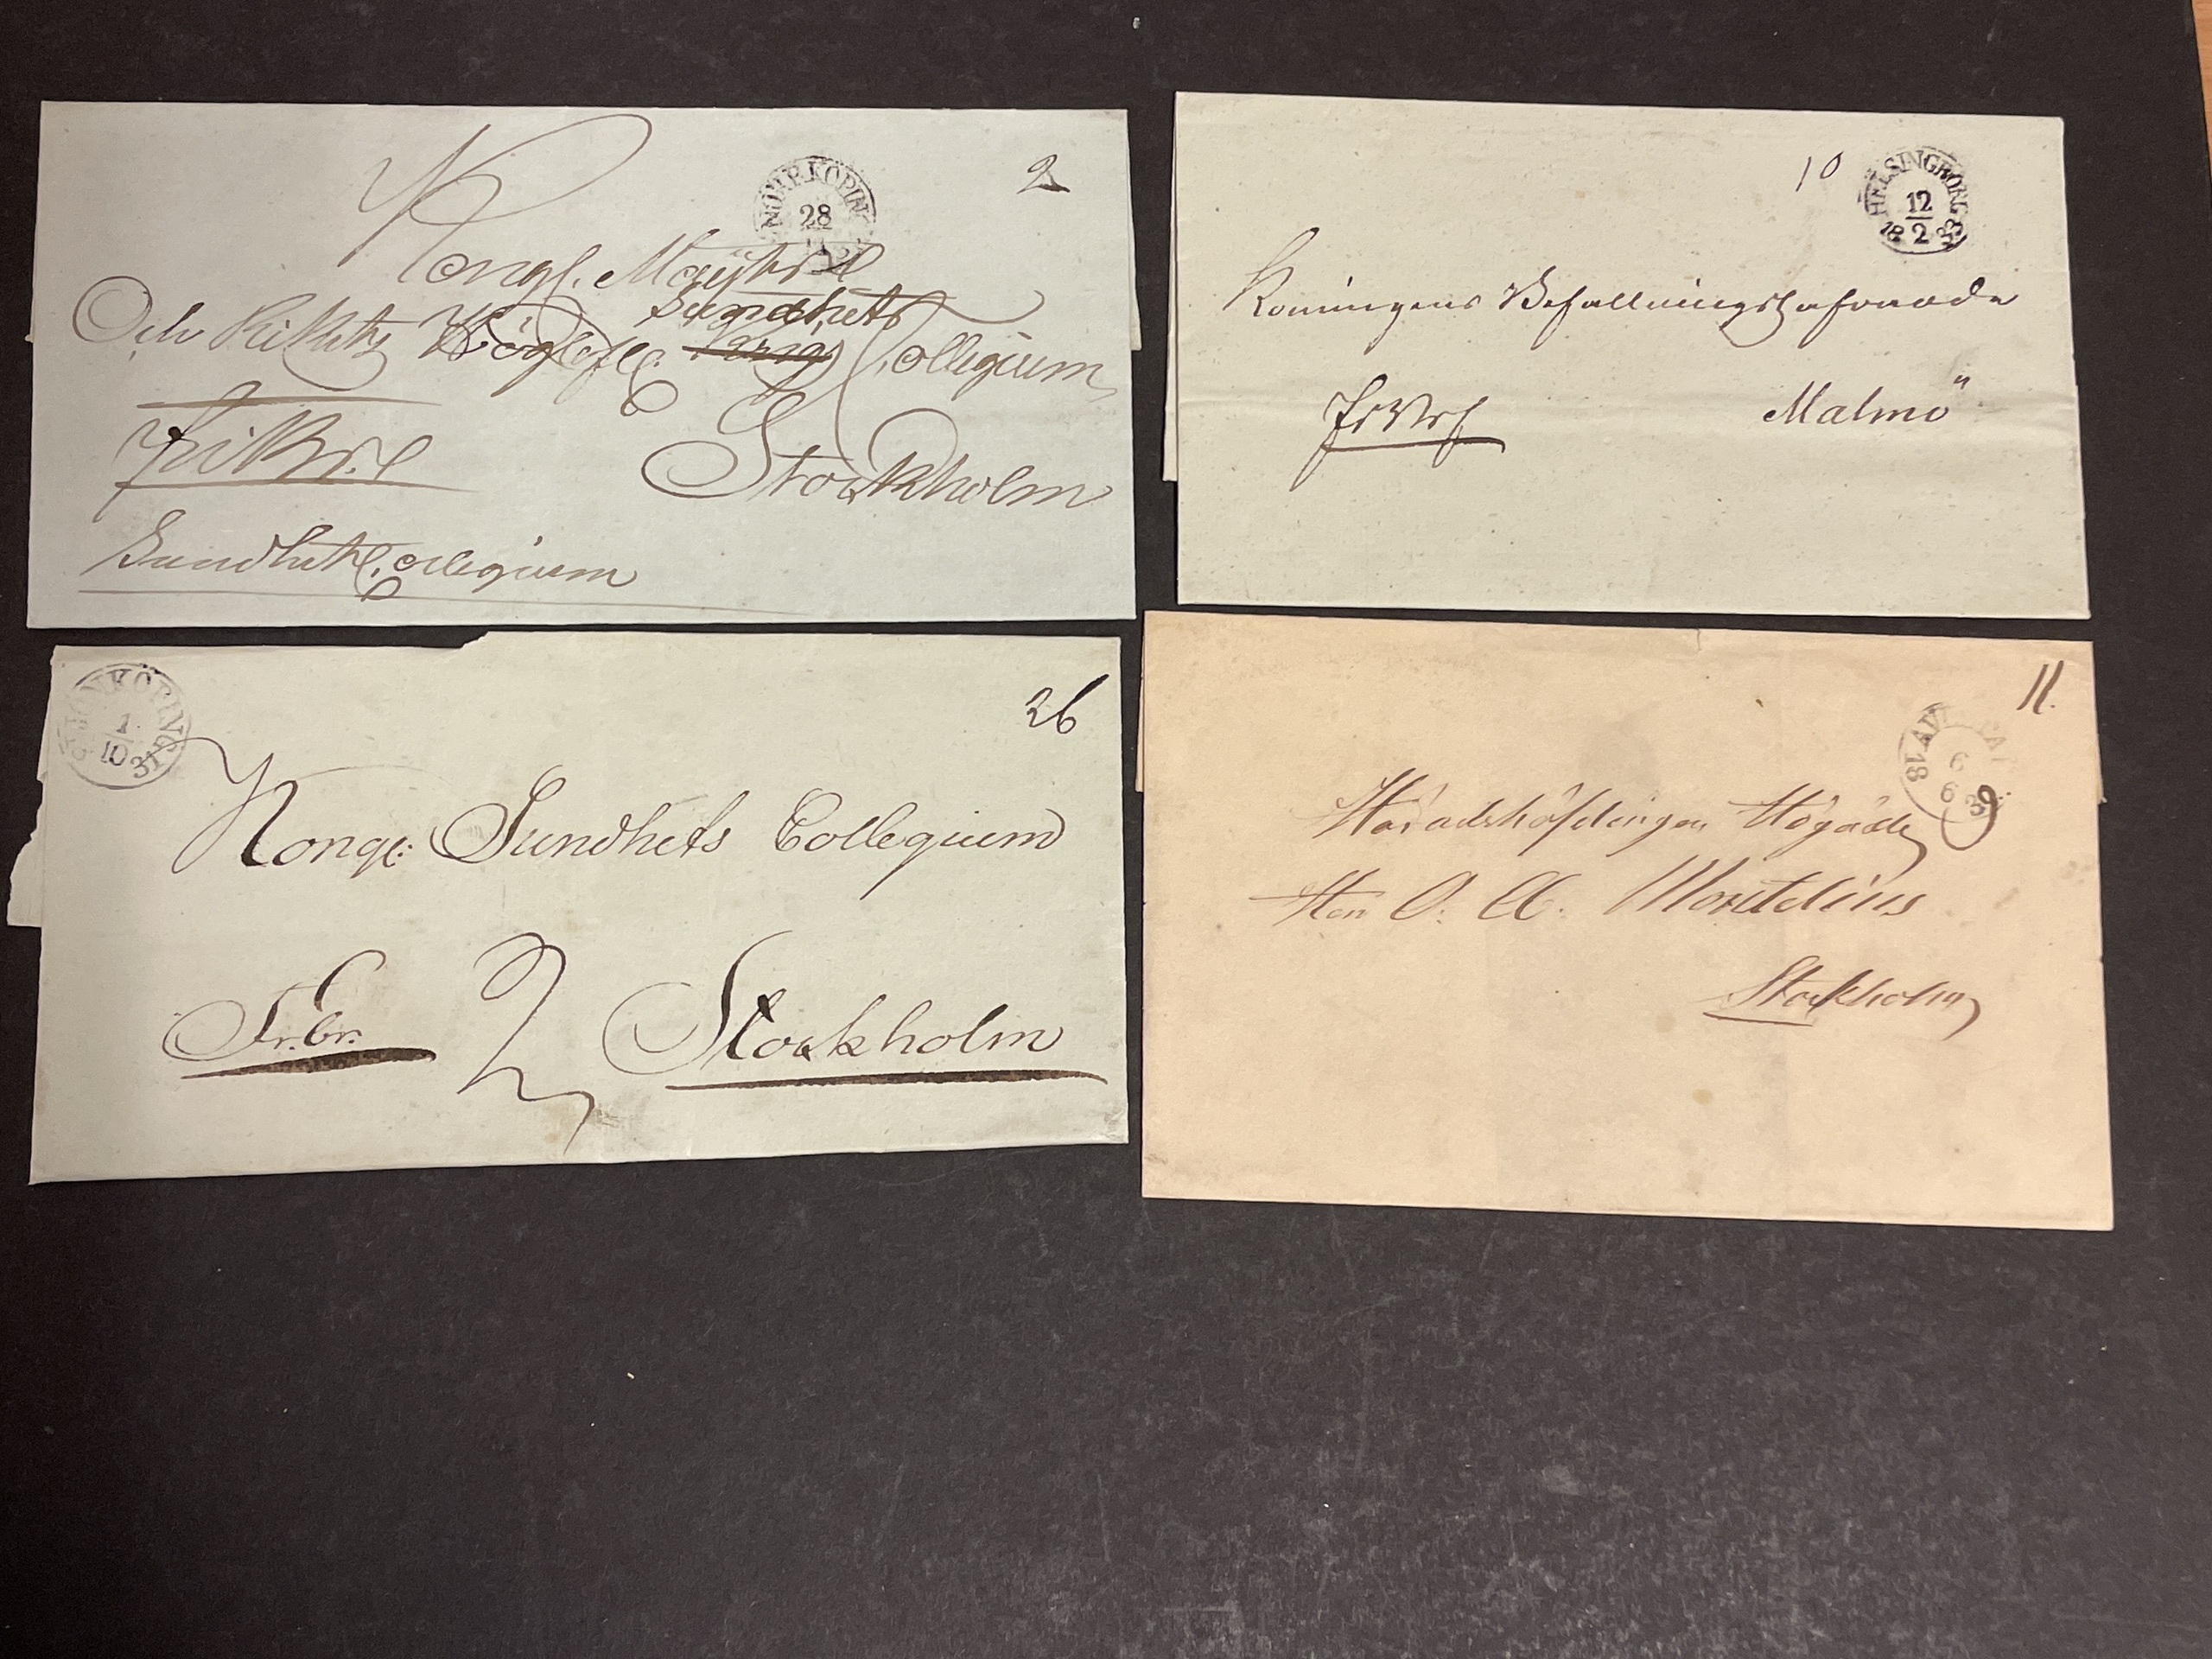 NORRKÖPING
28
2
Kongl. Maytts
Och Rikets Högloflc. Sundhets Collegium
Stockholm
Sundhets Collegium
HELSINGBORG
12
2
18 33
10
Konungens Befallningshafvande
Malmö
JÖNKÖPING
1
10
31
26
Kongl: Sundhets Collegium
Fr.br.
2
Stockholm
11.
18
6
6
39
Häradshöfdingen Högädle
Herr O. A. Montelius
Stockholm